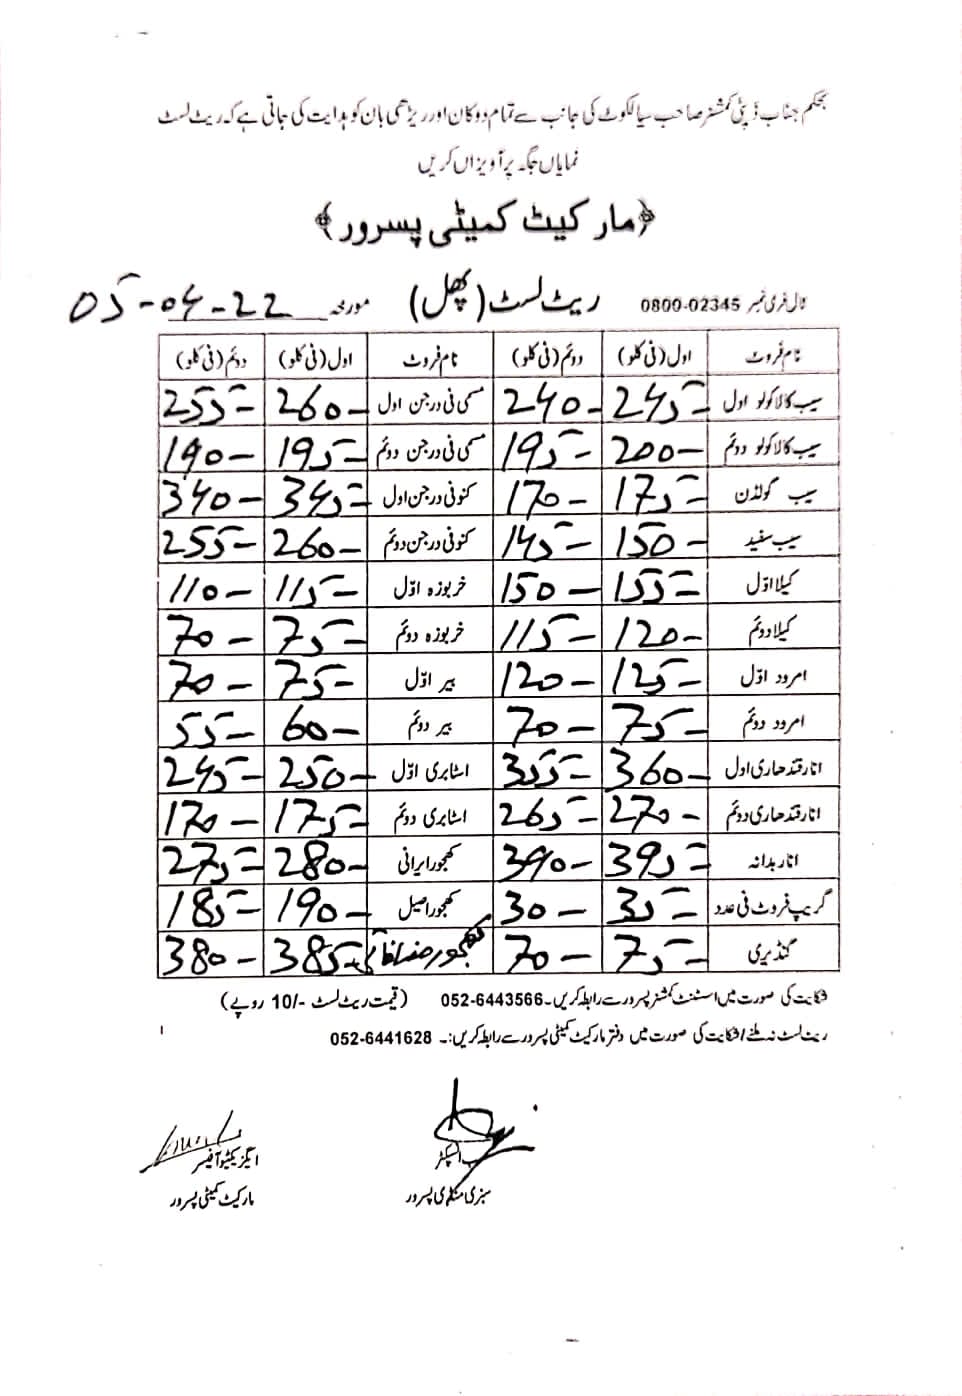 بحکم جناب ڈپٹی کمشنر صاحب سیالکوٹ کی جانب سے تمام دوکان اور ریڑھی بان کو ہدایت کی جاتی ہے کہ ریٹ لسٹ
نمایاں جگہ پر آویزاں کریں
﴿مارکیٹ کمیٹی پسرور﴾
ٹال فری نمبر 0800-02345 ریٹ لسٹ (پھل) مورخہ 05-04-22
نام فروٹ اول (فی کلو) دوئم (فی کلو) نام فروٹ اول (فی کلو) دوئم (فی کلو)
سیب کالا کولو اول 245 240 مسمی فی درجن اول 260 255
سیب کالا کولو دوئم 200 195 مسمی فی درجن دوئم 195 190
سیب گولڈن 175 170 کنو فی درجن اول 345 340
سیب سفید 150 145 کنو فی درجن دوئم 260 255
کیلا اوّل 155 150 خربوزہ اوّل 115 110
کیلا دوئم 120 115 خربوزہ دوئم 75 70
امرود اوّل 125 120 بیر اوّل 75 70
امرود دوئم 75 70 بیر دوئم 60 55
انار قندھاری اول 360 355 اسٹابری اوّل 250 245
انار قندھاری دوئم 270 265 اسٹابری دوئم 175 170
انار بدانہ 395 390 کھجور ایرانی 280 275
گریپ فروٹ فی عدد 35 30 کھجور اصیل 190 185
گنڈیری 75 70 کھجور 385 380
شکایت کی صورت میں اسسٹنٹ کمشنر پسرور سے رابطہ کریں۔ 052-6443566 (قیمت ریٹ لسٹ -/10 روپے)
ریٹ لسٹ نہ ملنے/شکایت کی صورت میں دفتر مارکیٹ کمیٹی پسرور سے رابطہ کریں:۔ 052-6441628
سب انسپکٹر
سبزی منڈی پسرور
ایگزیکٹو آفیسر
مارکیٹ کمیٹی پسرور